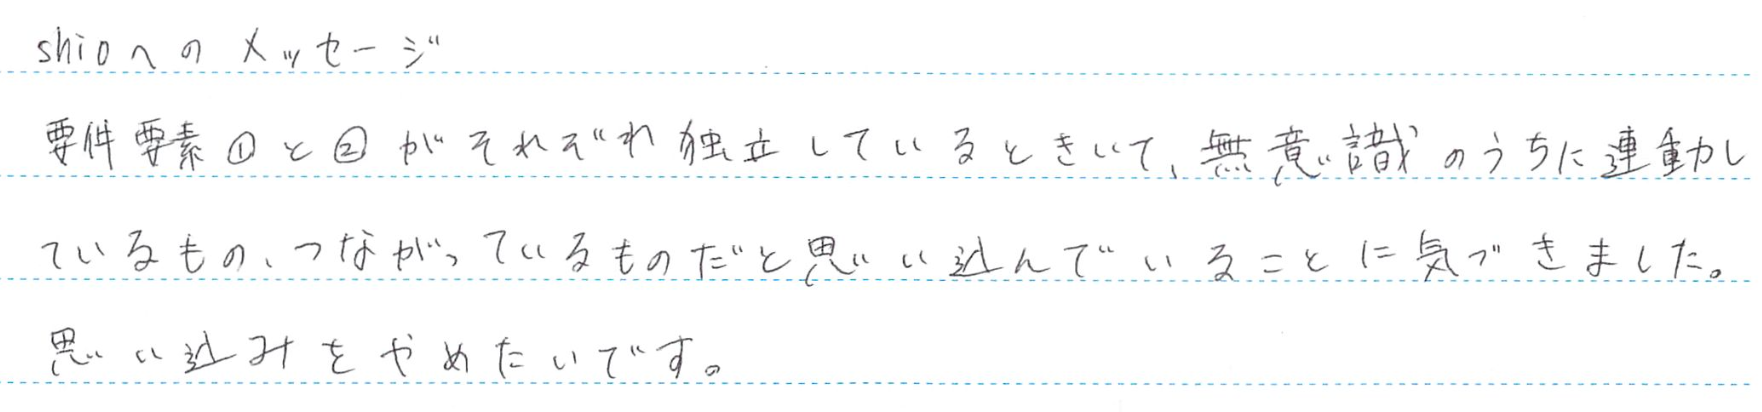 shioへのメッセージ
要件要素①と②がそれぞれ独立しているときいて、無意識のうちに連動し
ているもの、つながっているものだと思い込んでいることに気づきました。
思い込みをやめたいです。